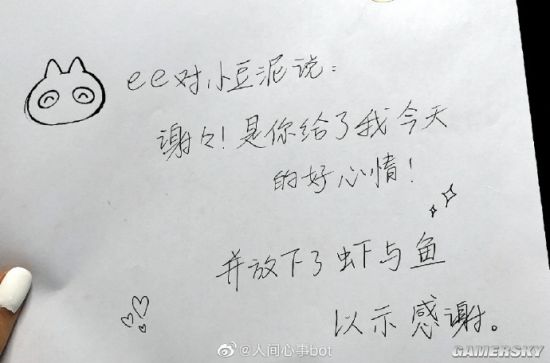 ee对小豆泥说：
谢々！是你给了我今天
的好心情！
并放下了虾与鱼
以示感谢。
@人间心事bot
GAMERSKY